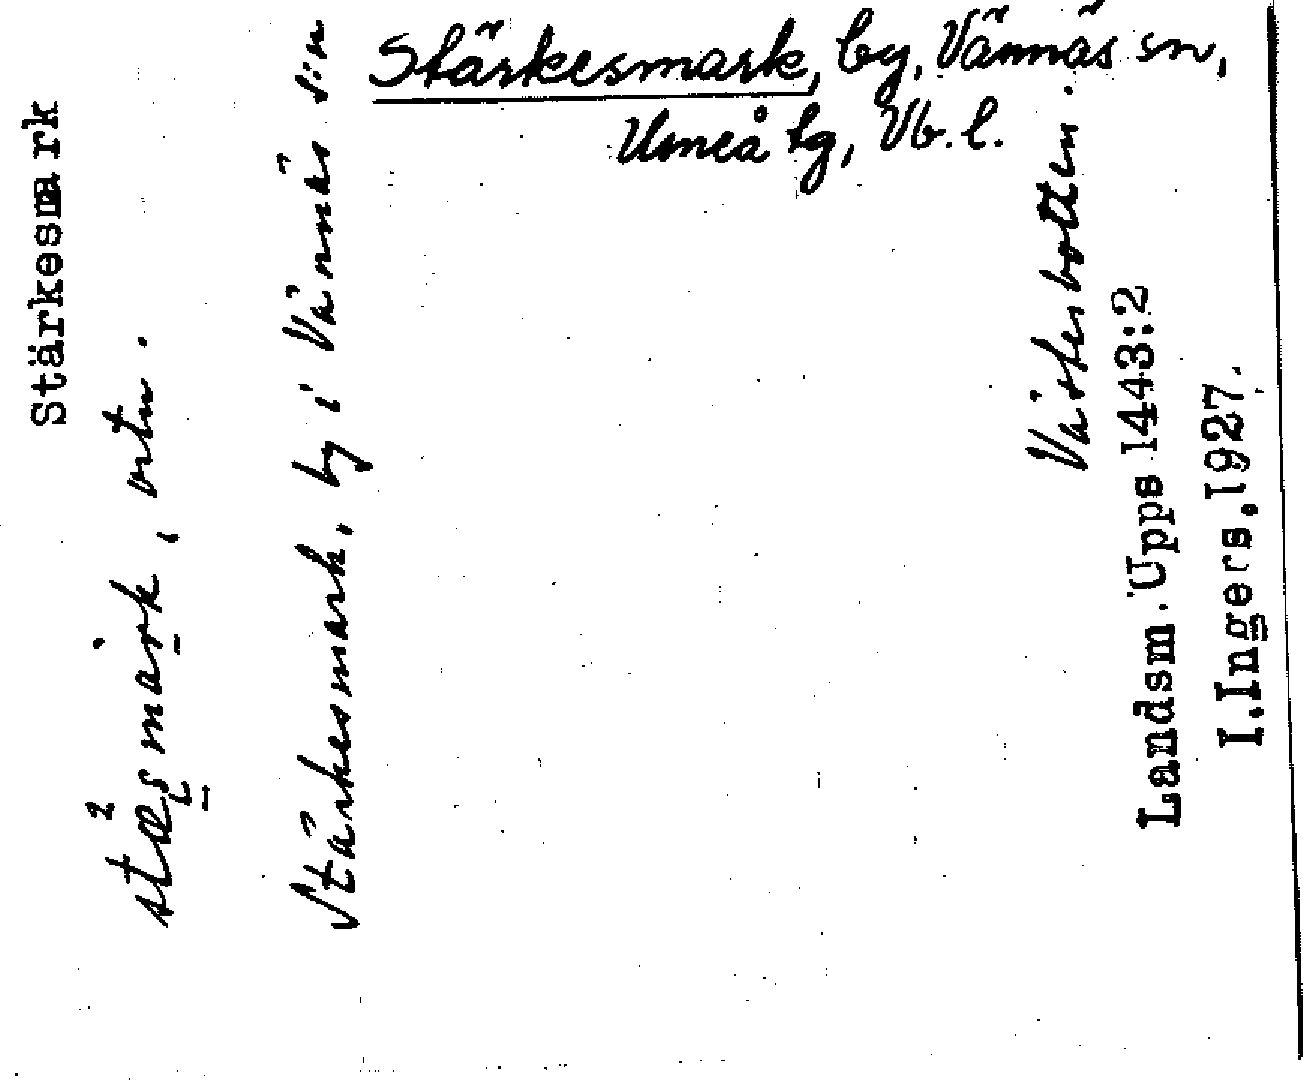 Stärkesmark, by, Vännäs sn,
Umeå tg, Vb. l.
Stärkesmark
stæsmark, ortn.
Stärkesmark, by i Vännäs s:n
Västerbotten.
Landsm. Upps 1443:2
I.Ingers.1927.